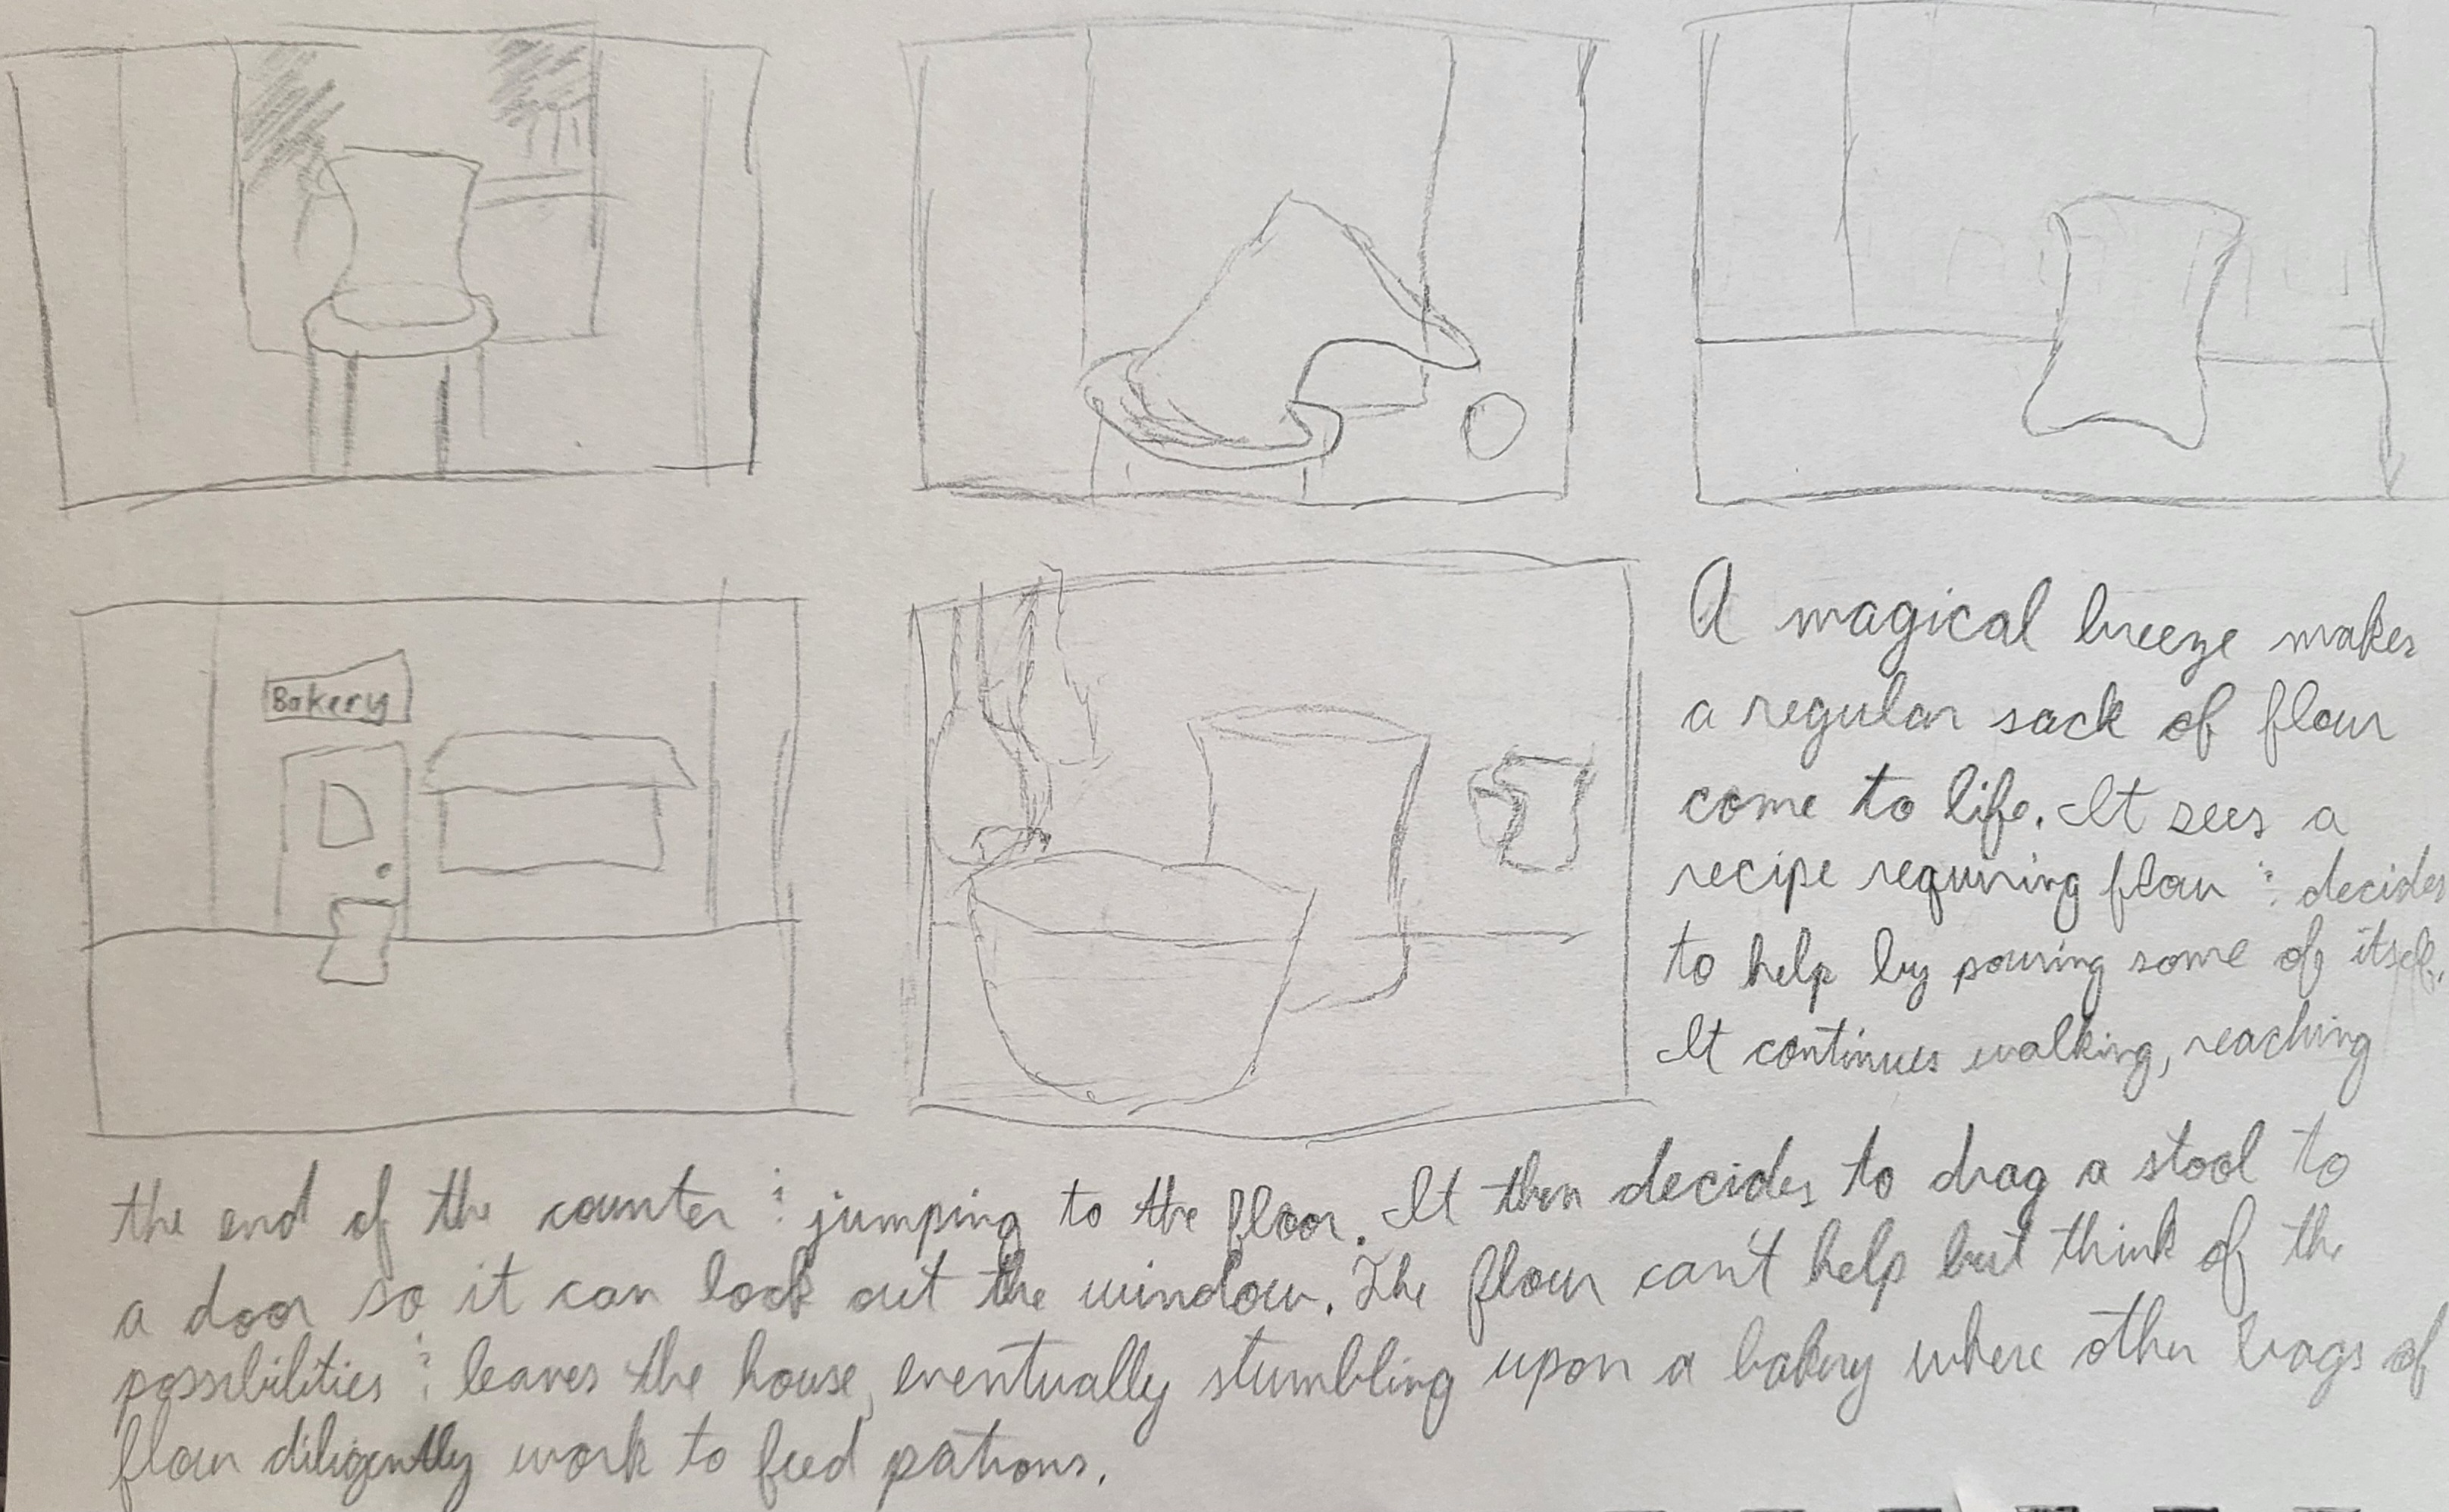 Bakery
A magical breeze makes
a regular sack of flour
come to life. It sees a
recipe requiring flour & decides
to help by pouring some of itself.
It continues walking, reaching
the end of the counter & jumping to the floor. It then decides to drag a stool to
a door so it can look out the window. The flour can't help but think of the
possibilities & leaves the house, eventually stumbling upon a bakery where other bags of
flour diligently work to feed patrons.